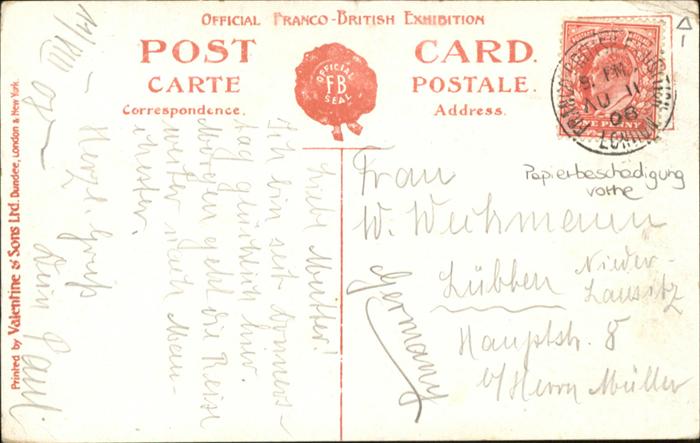 OFFICIAL FRANCO-BRITISH EXHIBITION
POST CARD.
CARTE POSTALE.
Correspondence. Address.
OFFICIAL
FB
SEAL
Printed by Valentine & Sons Ltd. Dundee, London & New York.
9 PM
AU 11
08
LONDON
Papierbeschädigung
vorne
Liebe Mutter!
Ich bin seit Donners-
tag glücklich hier.
Morgen geht die Reise
weiter nach Man-
chester.
Herzl. Gruß
Dein Paul.
11/VIII 08
Frau
W. Weihmann
Lübben Nieder-
Lausitz
Hauptstr. 8
b/Herrn Müller
Germany